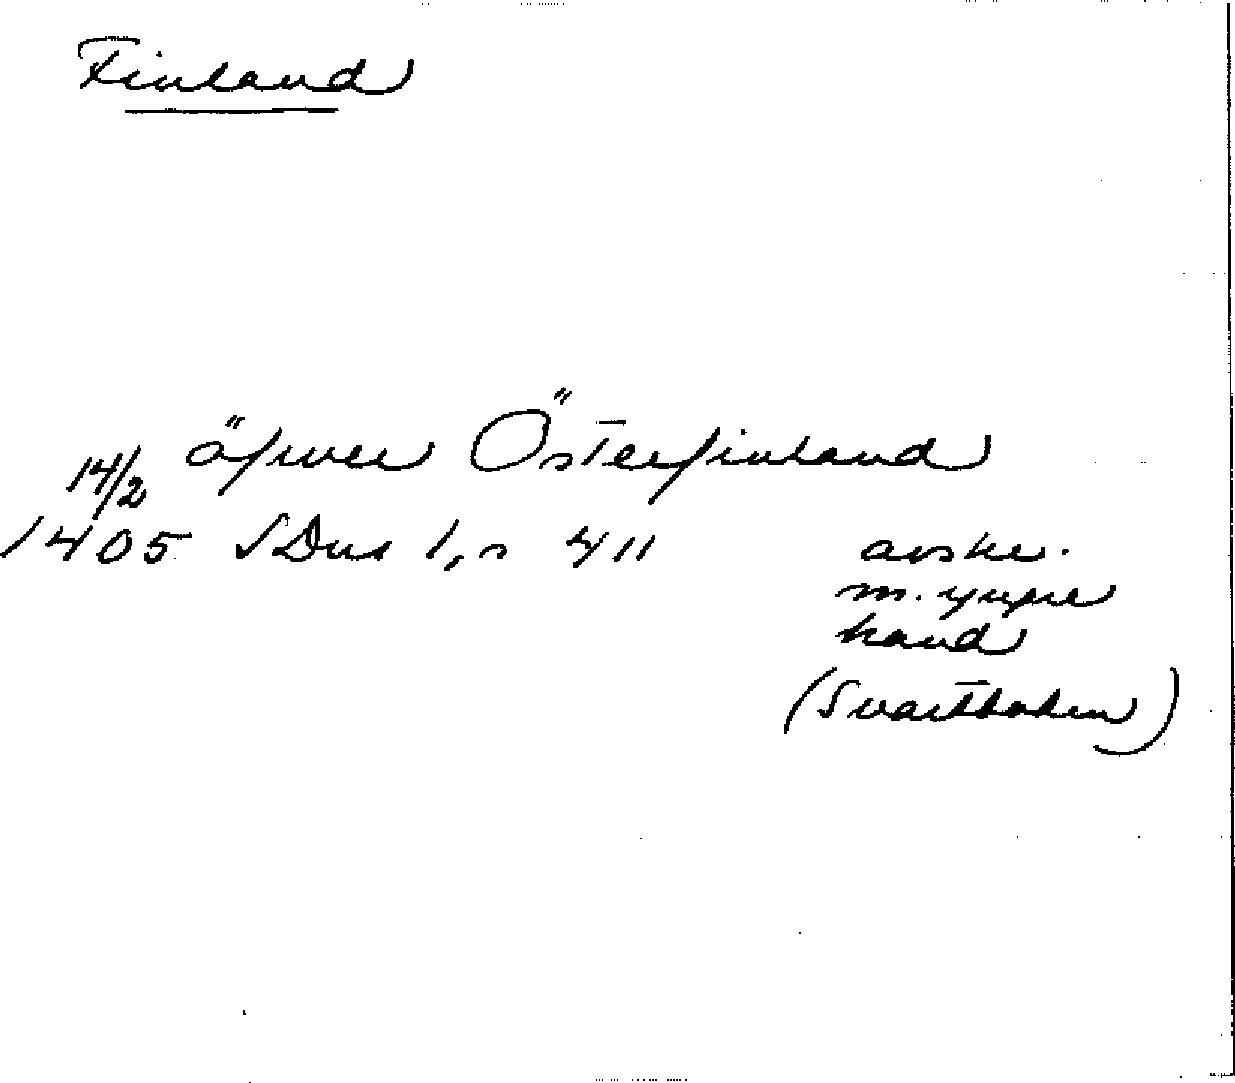 Finland
öfwer Österfinland
14/2
1405 SDns 1, s 411 avskr.
m. yngre
hand
(Svartboken)